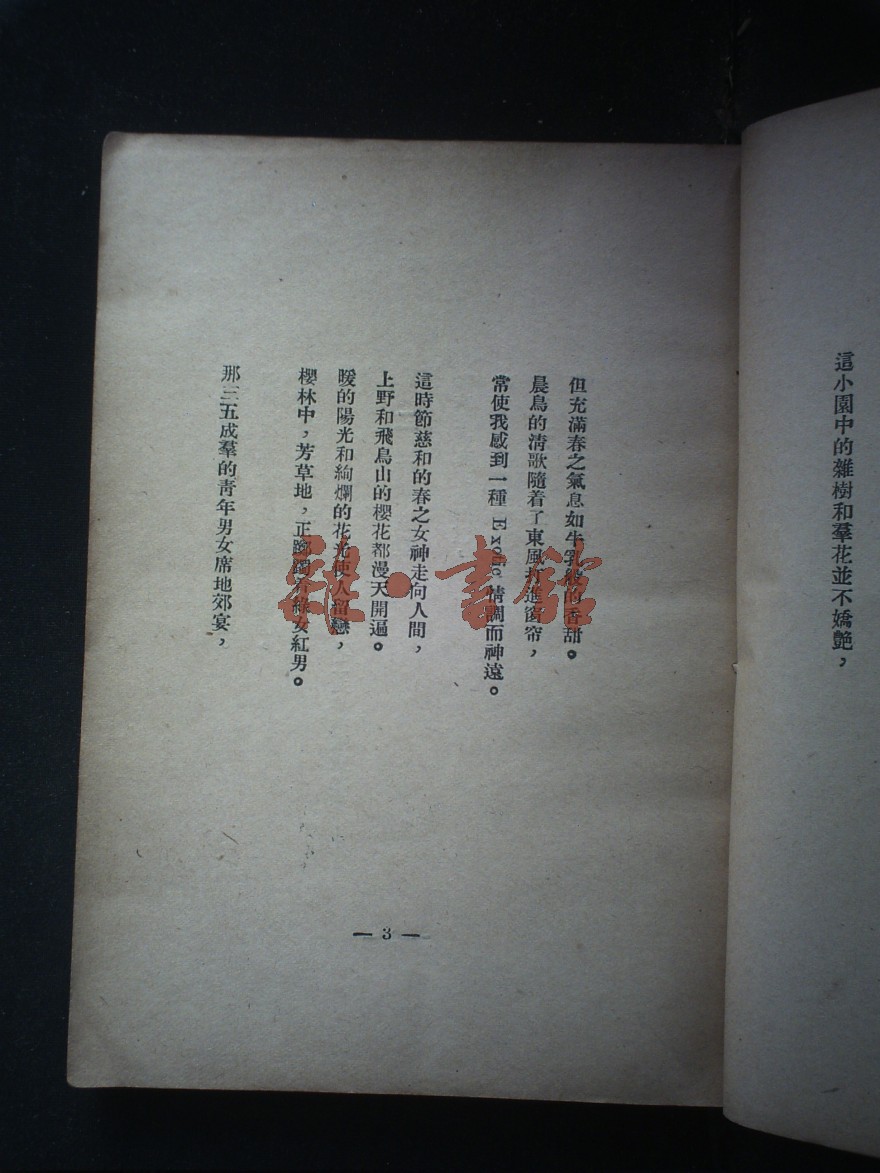 這小園中的雜樹和羣花並不嬌艶，
但充滿春之氣息如牛乳般的香甜。
晨鳥的清歌隨着了東風打進窗帘，
常使我感到一種 Exotic 情調而神遠。
這時節慈和的春之女神走向人間，
上野和飛鳥山的櫻花都漫天開遍。
暖的陽光和絢爛的花光使人留戀，
櫻林中，芳草地，正躑躅着綠女紅男。
那三五成羣的靑年男女席地郊宴，
— 3 —
·書館